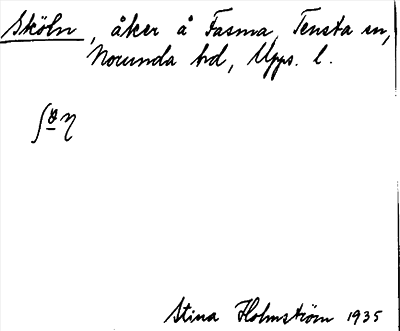 Sköln, åker å Fasma, Tensta sn,
Norunda hd, Upps. l.
Stina Holmström 1935